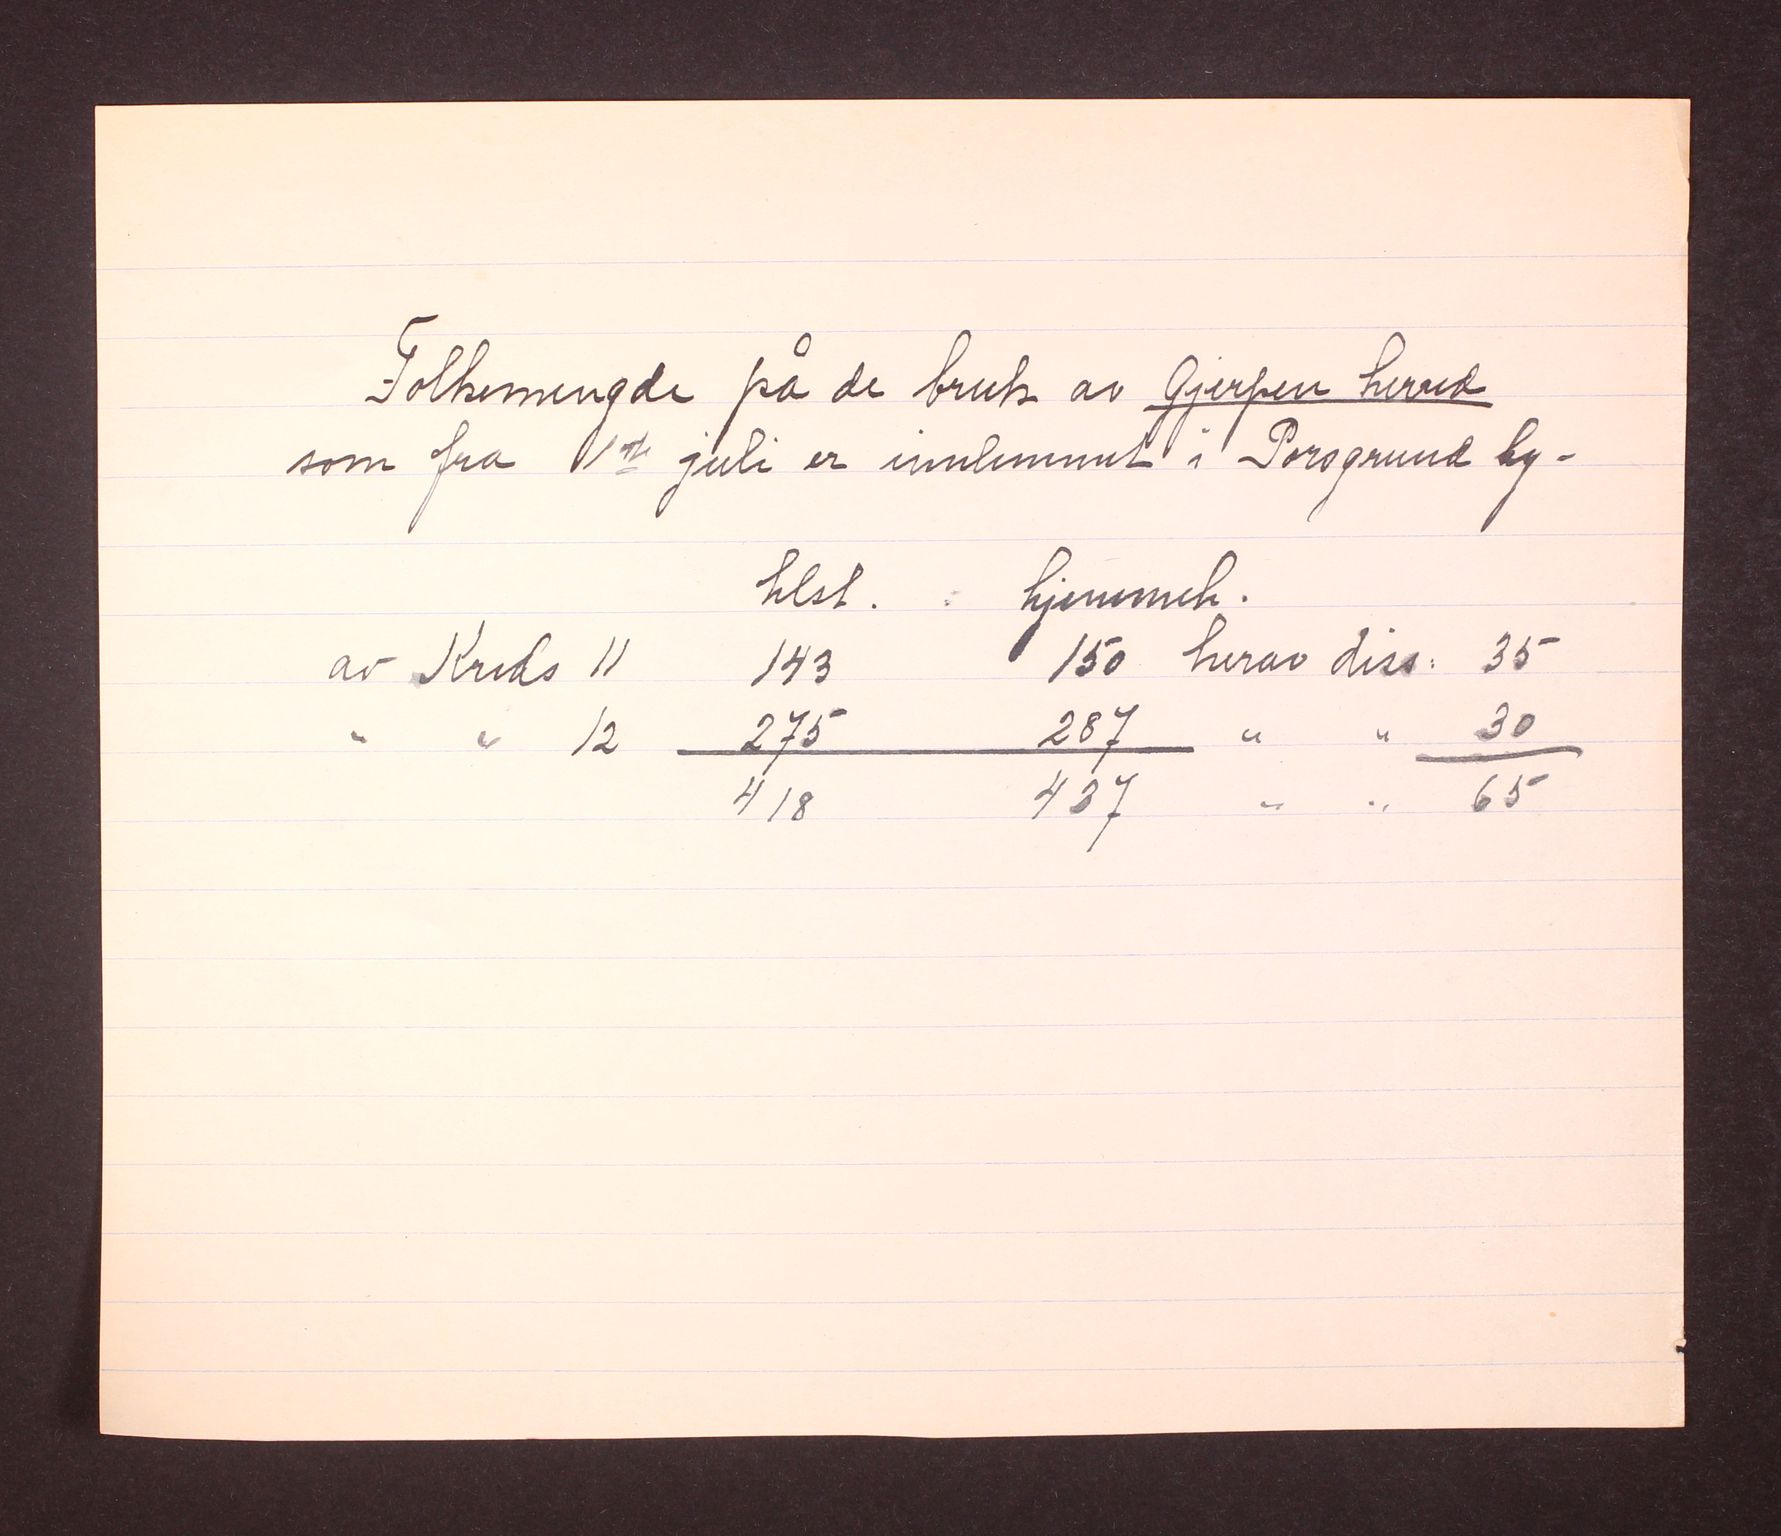 Folkemengde på de bruk av Gjerpen herred
som fra 1ste juli er innlemmet i Porsgrund by-
tlst. hjemmeh.
av Kreds 11 143 150 herav diss: 35
" " 12 275 287 " " 30
418 437 " " 65